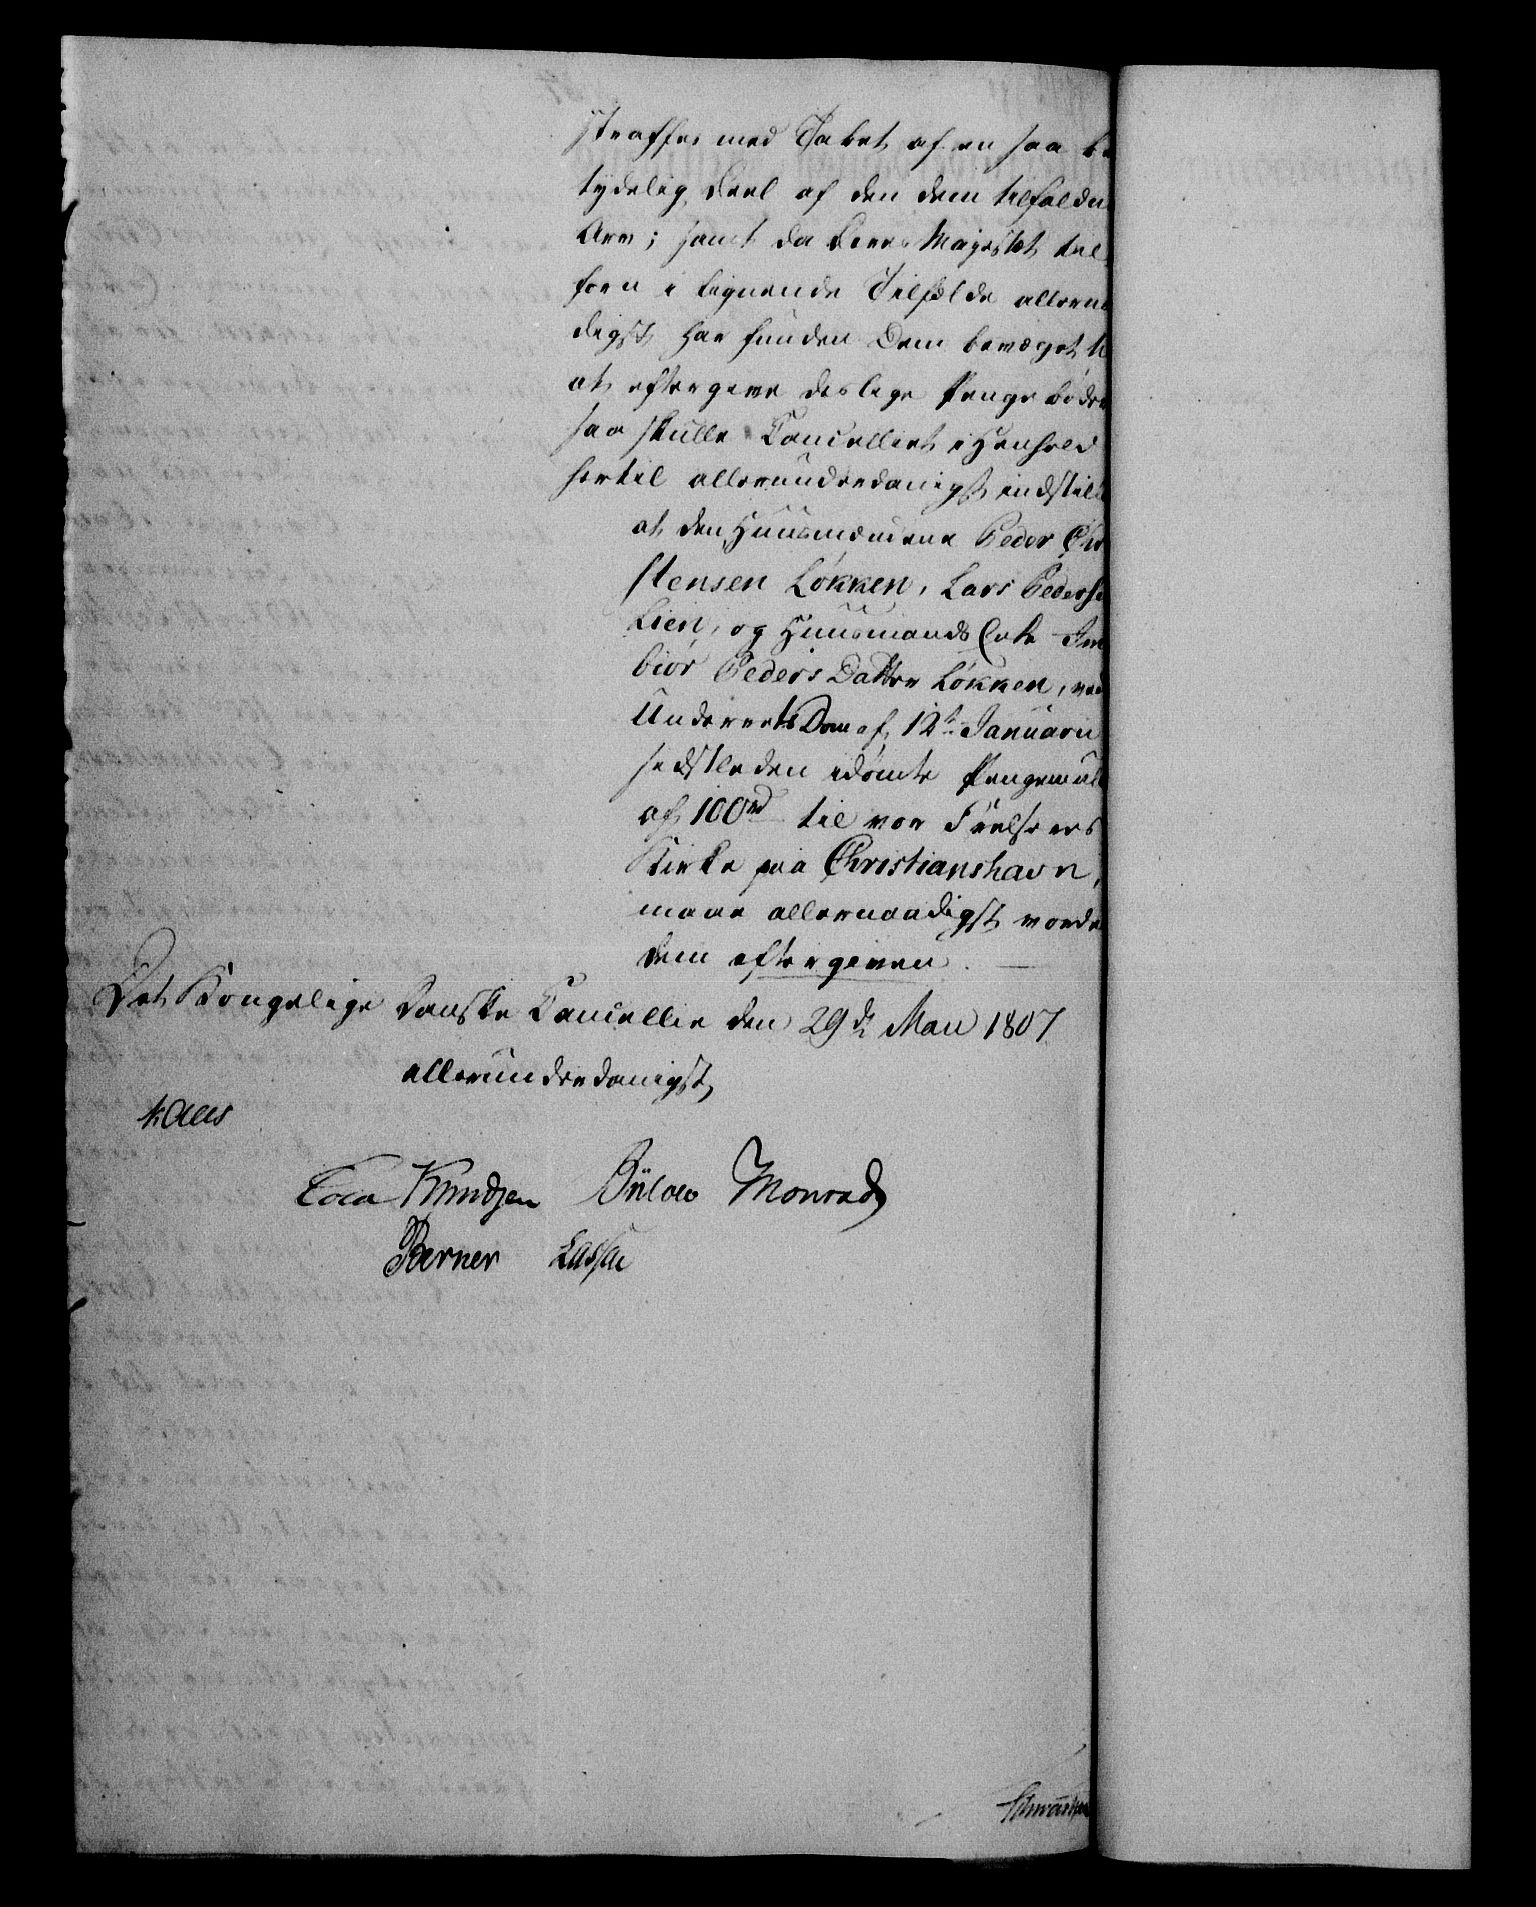 straffes med Tabet af en saa be
tydelig Deel af den dem tilfaldne
Arv; samt da Deres Majestæt til
forn i lignende Tilfælde allernaa
digst har funden Dem bevæget til
at eftergive deslige Pengebøder
saa skulle Cancelliet i Henhold
hertil allerunderdanigst indstille
at den Huusmændene Peder Chri
stensen Løkken, Lars Pederse
Lien, og Huusmands Enke
biør Peders Datter Løkken, ved
Underrets Dom af 12te Januarii
sidstleden idømte Pengemulct
af 100 rd til vor Frelsers
Kirke paa Christianshavn,
maae allernaadigst vorde
dem eftergiven.
Det Kongelige Danske Cancellie den 29de Maii 1807
allerunderdanigst
Kaas
Cold Knudsen Bülow Monrad
Berner Lassen